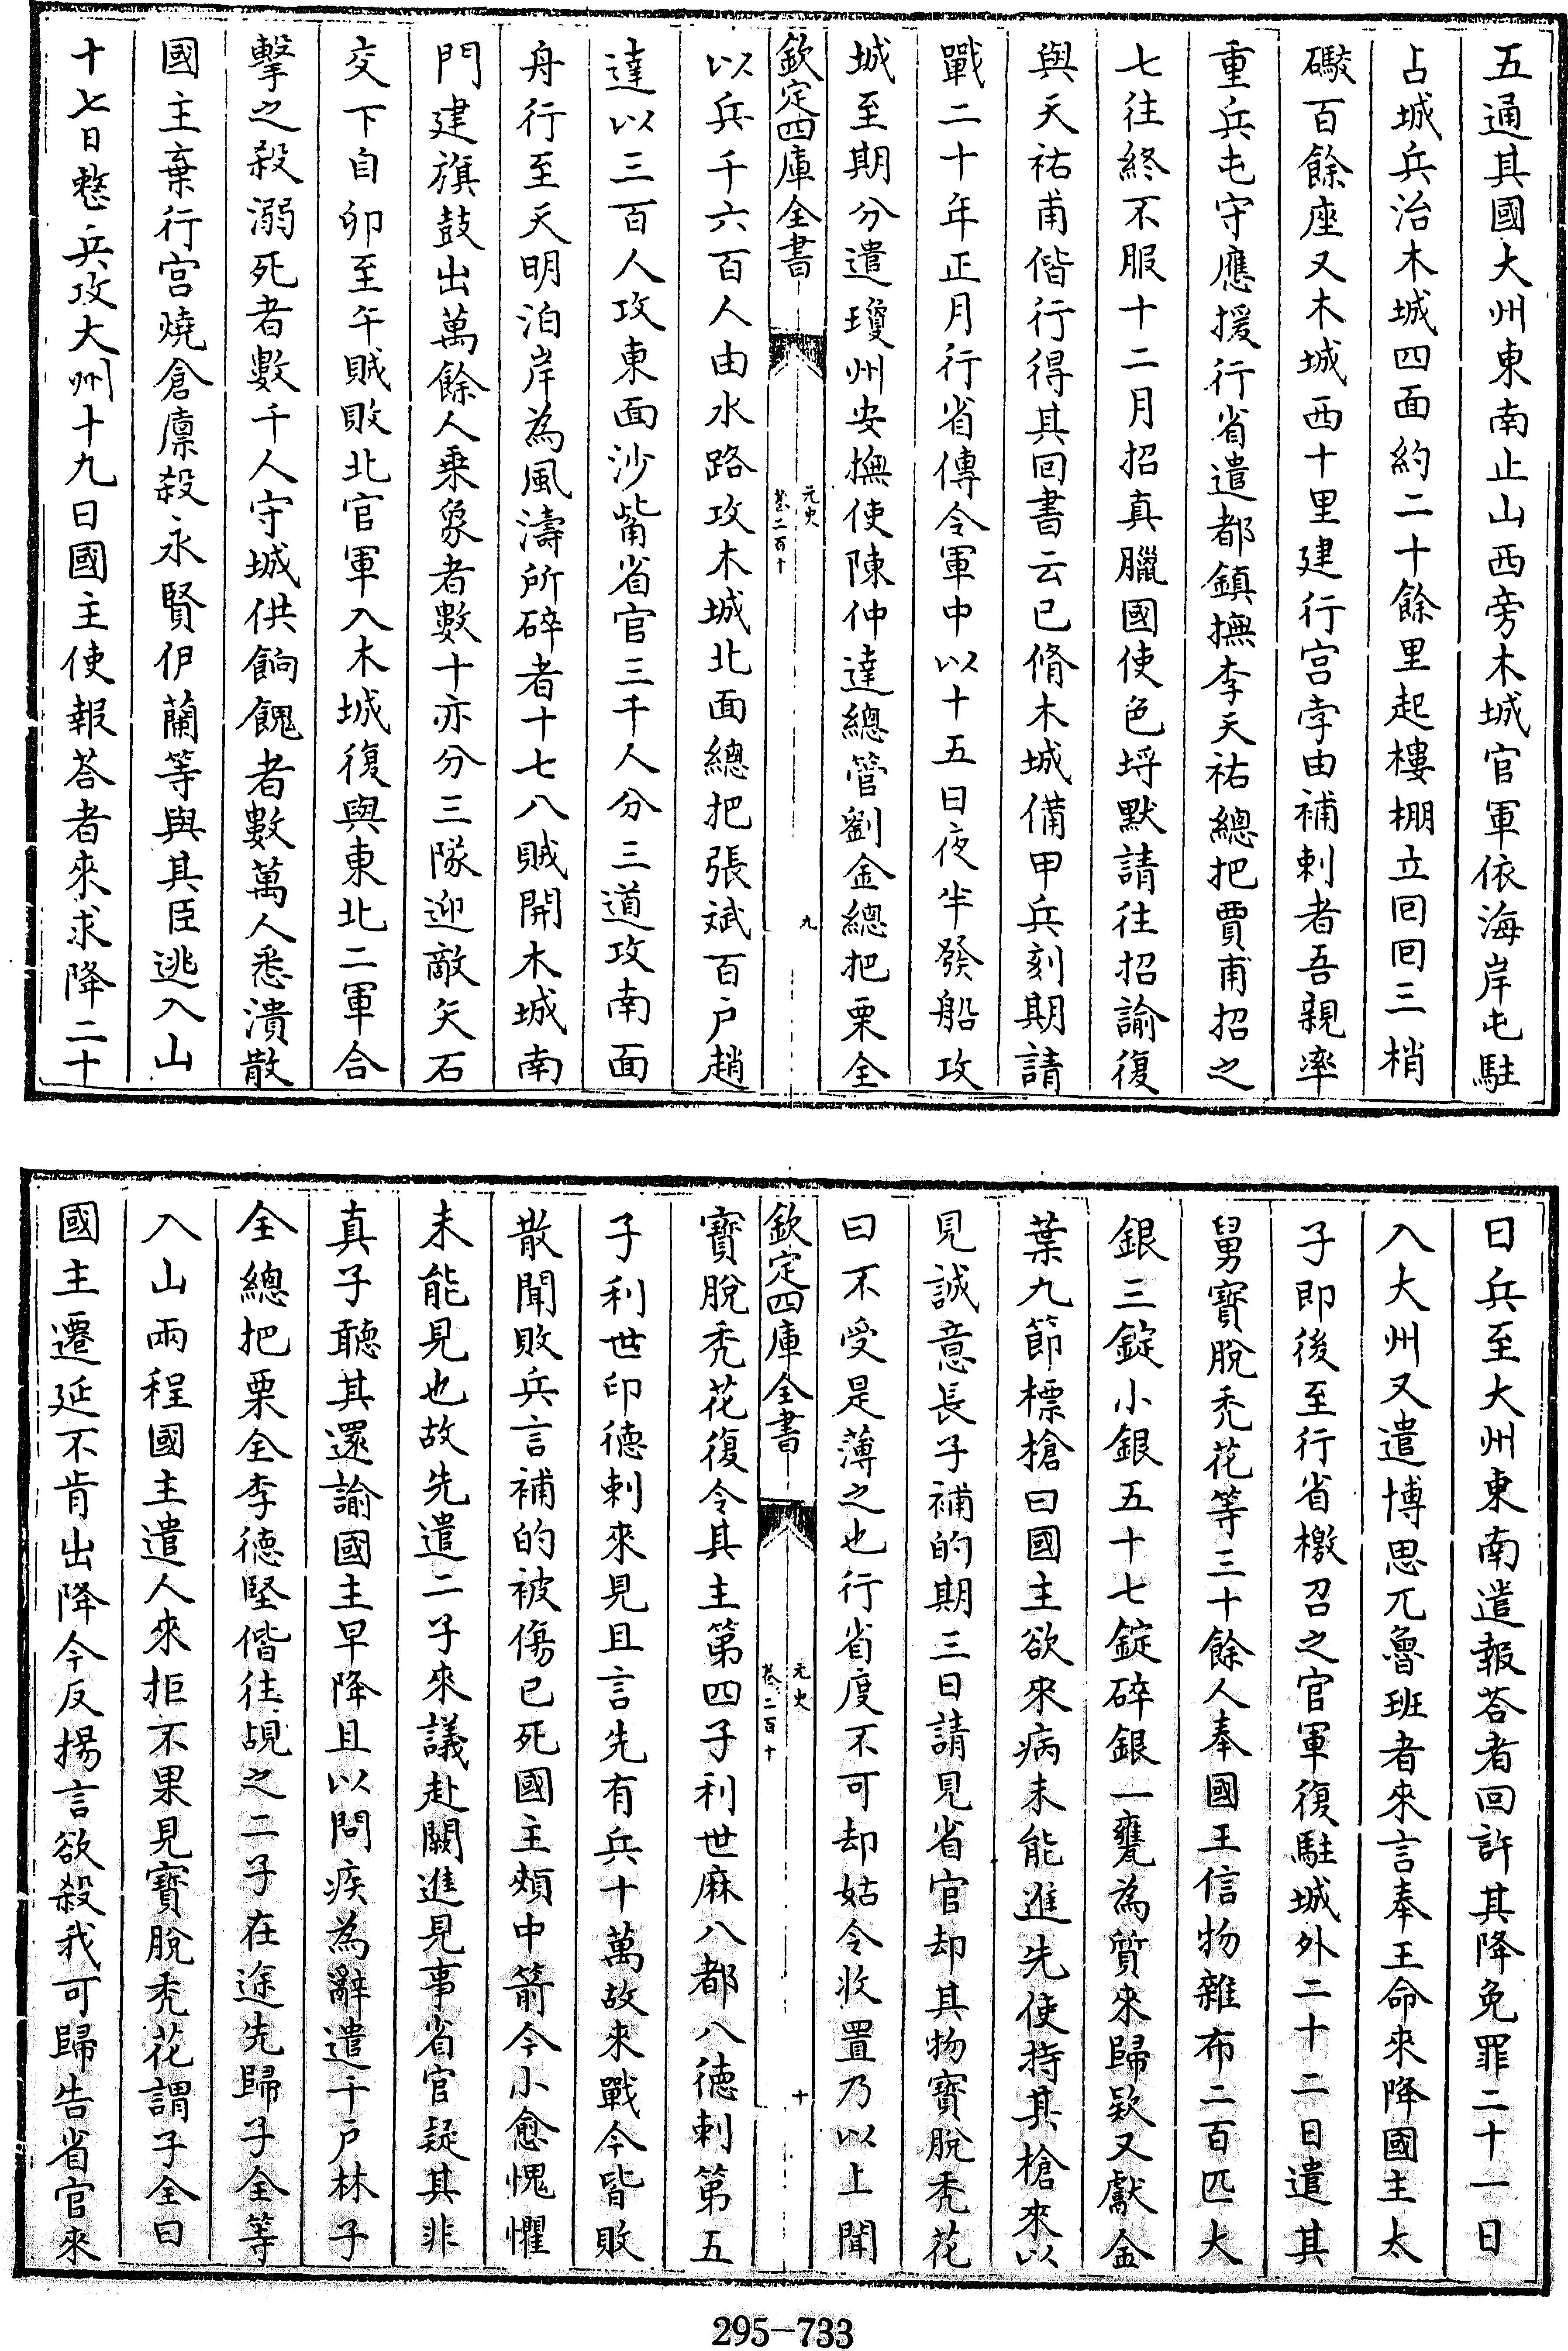 五通其國大州東南止山西旁木城官軍依海岸屯駐
占城兵治木城四面約二十餘里起樓棚立回回三梢
礮百餘座又木城西十里建行宫孛由補剌者吾親率
重兵屯守應援行省遣都鎮撫李天祐總把賈甫招之
七往終不服十二月招真臘國使色埒默請往招諭復
與天祐甫偕行得其回書云已脩木城備甲兵刻期請
戰二十年正月行省傳令軍中以十五日夜半發船攻
城至期分遣瓊州安撫使陳仲達總管劉金總把栗全
欽定四庫全書
元史
卷二百十
九
以兵千六百人由水路攻木城北面總把張斌百戶趙
達以三百人攻東面沙觜省官三千人分三道攻南面
舟行至天明泊岸為風濤所碎者十七八賊開木城南
門建旗鼓出萬餘人乘象者數十亦分三隊迎敵矢石
交下自卯至午賊敗北官軍入木城復與東北二軍合
擊之殺溺死者數千人守城供餉餽者數萬人悉潰散
國主棄行宫燒倉廩殺永賢伊蘭等與其臣逃入山
十七日整兵攻大州十九日國主使報荅者來求降二十
日兵至大州東南遣報荅者回許其降免罪二十一日
入大州又遣博思兀魯班者來言奉王命來降國主太
子即後至行省檄召之官軍復駐城外二十二日遣其
舅寶脫秃花等三十餘人奉國王信物雜布二百匹大
銀三錠小銀五十七錠碎銀一甕為質來歸欵又獻金
葉九節標槍曰國主欲來病未能進先使持其槍來以
見誠意長子補的期三日請見省官却其物寶脫秃花
曰不受是薄之也行省度不可却姑令收置乃以上聞
欽定四庫全書
元史
卷二百十
十
寶脫秃花復令其主第四子利世麻八都八德剌第五
子利世印德剌來見且言先有兵十萬故來戰今皆敗
散聞敗兵言補的被傷已死國主頰中箭今小愈愧懼
未能見也故先遣二子來議赴闕進見事省官疑其非
真子聽其還諭國主早降且以問疾為辭遣千戶林子
全總把栗全李德堅偕往覘之二子在途先歸子全等
入山兩程國主遣人來拒不果見寶脫秃花謂子全曰
國主遷延不肯出降今反揚言欲殺我可歸告省官來
295-733